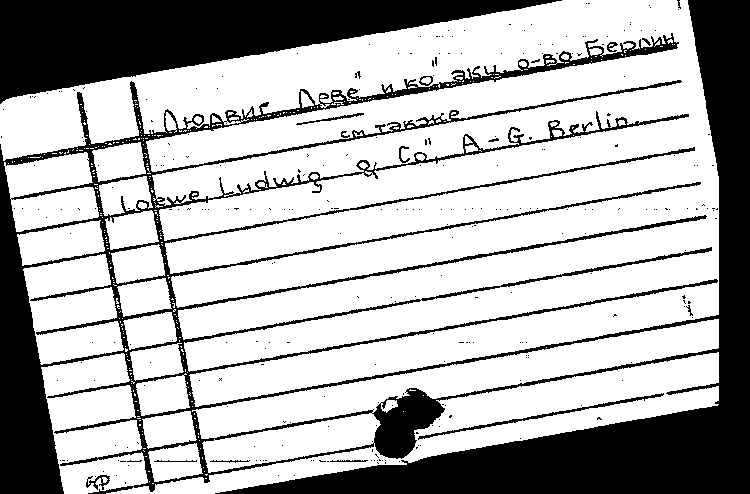 „Людвиг Леве" и ко", акц. о-во. Берлин
см также
„Loewe, Ludwig & Co", A-G. Berlin.
кр